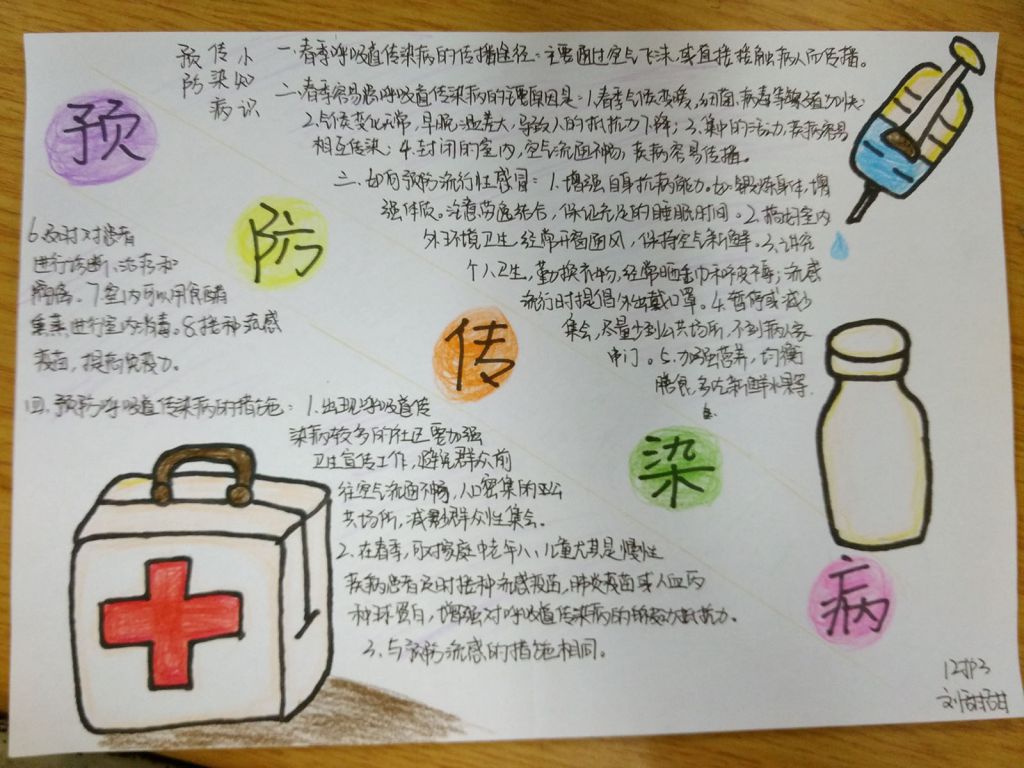 预防传染病小知识
预
防
传
染
病
一.春季呼吸道传染病的传播途径:主要通过空气飞沫,或直接接触病人而传播。
二.春季容易患呼吸道传染病的主要原因是:1.春季气候变暖,细菌、病毒等繁殖加快;
2.气候变化无常,早晚温差大,导致人的抵抗力下降;3.集中的活动,疾病容易
相互传染;4.封闭的室内,空气流通不畅,疾病容易传播。
三.如何预防流行性感冒:1.增强自身抗病能力。如锻炼身体,增
强体质。注意劳逸结合,保证充足的睡眠时间。2.搞好室内
外环境卫生.经常开窗通风,保持空气新鲜。3.讲究
个人卫生,勤换衣物,经常晒毛巾和被褥等;流感
流行时提倡外出戴口罩。4.暂停或减少
集会,尽量少到公共场所,不到病人家
串门。5.加强营养,均衡
膳食,多吃新鲜水果等.
6.及时对患者
进行诊断、治疗和
隔离。7.室内可以用食醋
熏蒸进行室内消毒。8.接种流感
疫苗,提高免疫力。
四.预防呼吸道传染病的措施:1.出现呼吸道传
染病较多的社区要加强
卫生宣传工作,避免群众前
往空气流通不畅,人口密集的公
共场所,减少群众性集会。
2.在春季,可对家庭中老年人、儿童尤其是慢性
疾病患者定时接种流感疫苗,肺炎疫苗或人血丙
种球蛋白,增强对呼吸道传染病的免疫力抵抗力。
3.与预防流感的措施相同。
12护3
刘甜甜